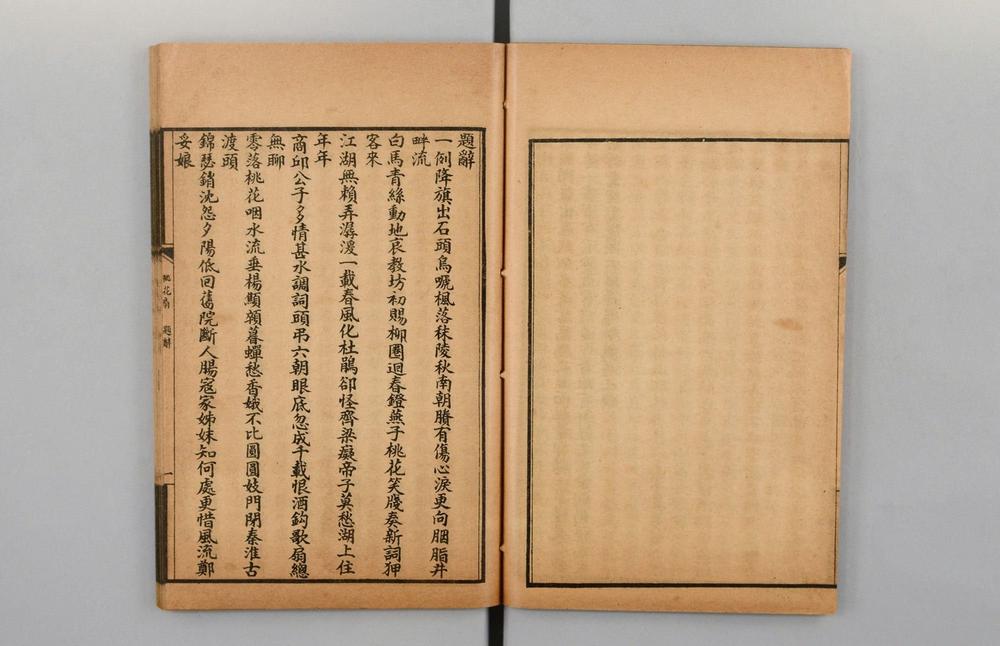 題辭
一例降旗出石頭烏啼楓落秣陵秋南朝賸有傷心淚更向胭脂井
畔流
白馬青絲動地哀教坊初賜柳圈迴春鐙燕子桃花笑牋奏新詞狎
客來
江湖無賴弄潺湲一載春風化杜鵑卻怪齊梁癡帝子莫愁湖上住
年年
商邱公子多情甚水調詞頭弔六朝眼底忽成千載恨酒鈎歌扇總
無聊
零落桃花咽水流垂楊顦顇暮蟬愁香娥不比圓圓妓門閉秦淮古
渡頭
錦瑟銷沈怨夕陽低回舊院斷人腸寇家姊妹知何處更惜風流鄭
妥娘
桃花扇 題辭
一